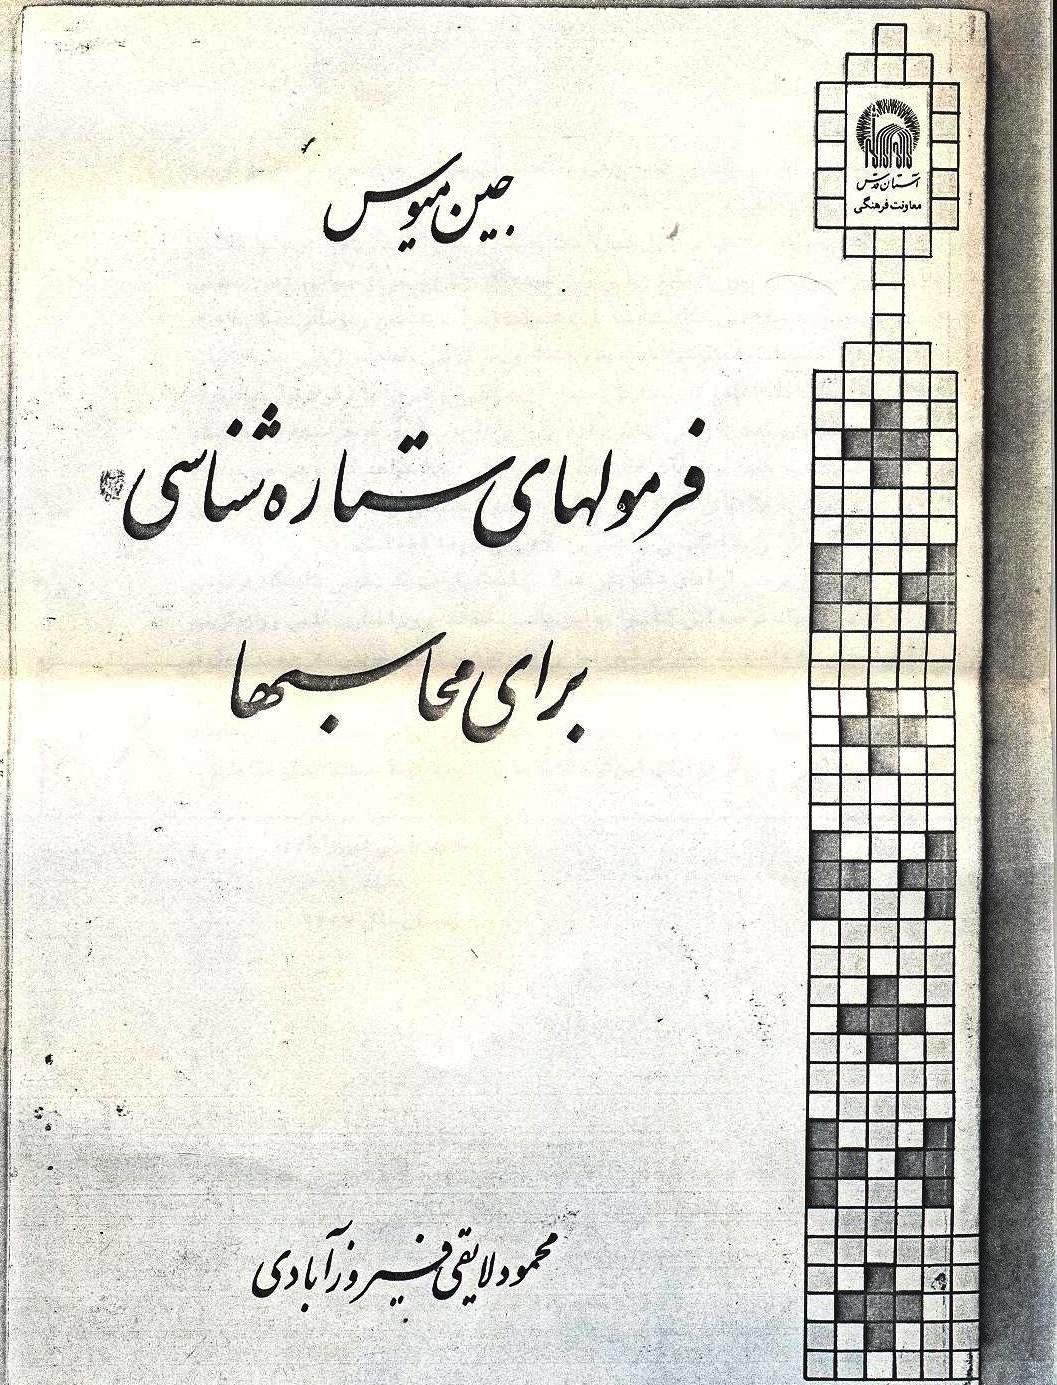 آستان قدس
معاونت فرهنگی
جین میوس
فرمولهای ستاره شناسی
برای محاسبه‌ها
محمود لایقی فیروزآبادی